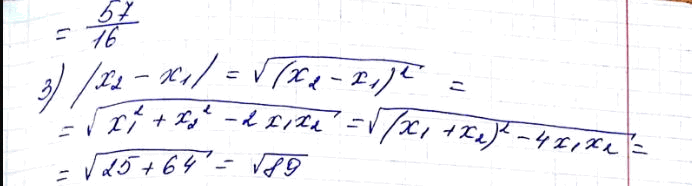 = 57/16
3) |x₂ - x₁| = √(x₂ - x₁)² =
= √x₁² + x₂² - 2x₁x₂ = √(x₁ + x₂)² - 4x₁x₂ =
= √25 + 64 = √89